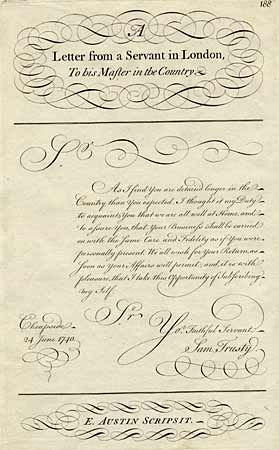 188
A
Letter from a Servant in London,
To his Master in the Country.
Sr.
As I find You are detained longer in the
Country than You expected, I thought it my Duty
to acquaint You that we are all well at Home, and
to assure You, that Your Business shall be carried
on with the same Care and Fidelity as if You were
personally present. We all wish for Your Return, as
soon as Your Affairs will permit, and it is with
pleasure, that I take this Opportunity of Subscribing
my Self.
Sr
Yor. Faithful Servant
Cheapside
24 June 1740.
Sam. Trusty
E. AUSTIN SCRIPSIT.